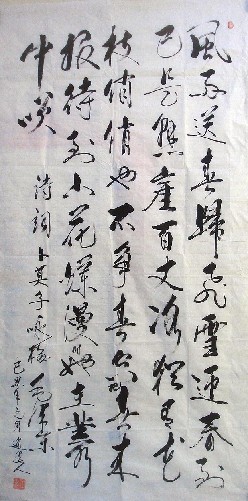 風雨送春歸飛雪迎春到
已是懸崖百丈冰猶有花
枝俏俏也不争春只把春来
报待到山花爛漫時她在叢
中咲
詩詞卜算子咏梅毛泽东
己丑年